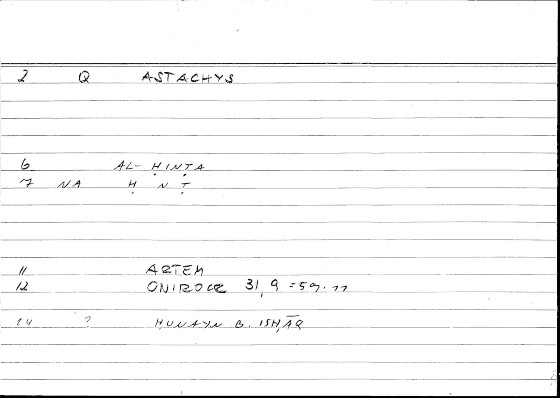 2 Q ASTACHYS
6 AL-ḤINṬA
7 NA Ḥ N Ṭ
11 ARTEM
12 ONIROCR 31,9 = 59.11
14 ? ḤUNAYN B. ISḤĀQ